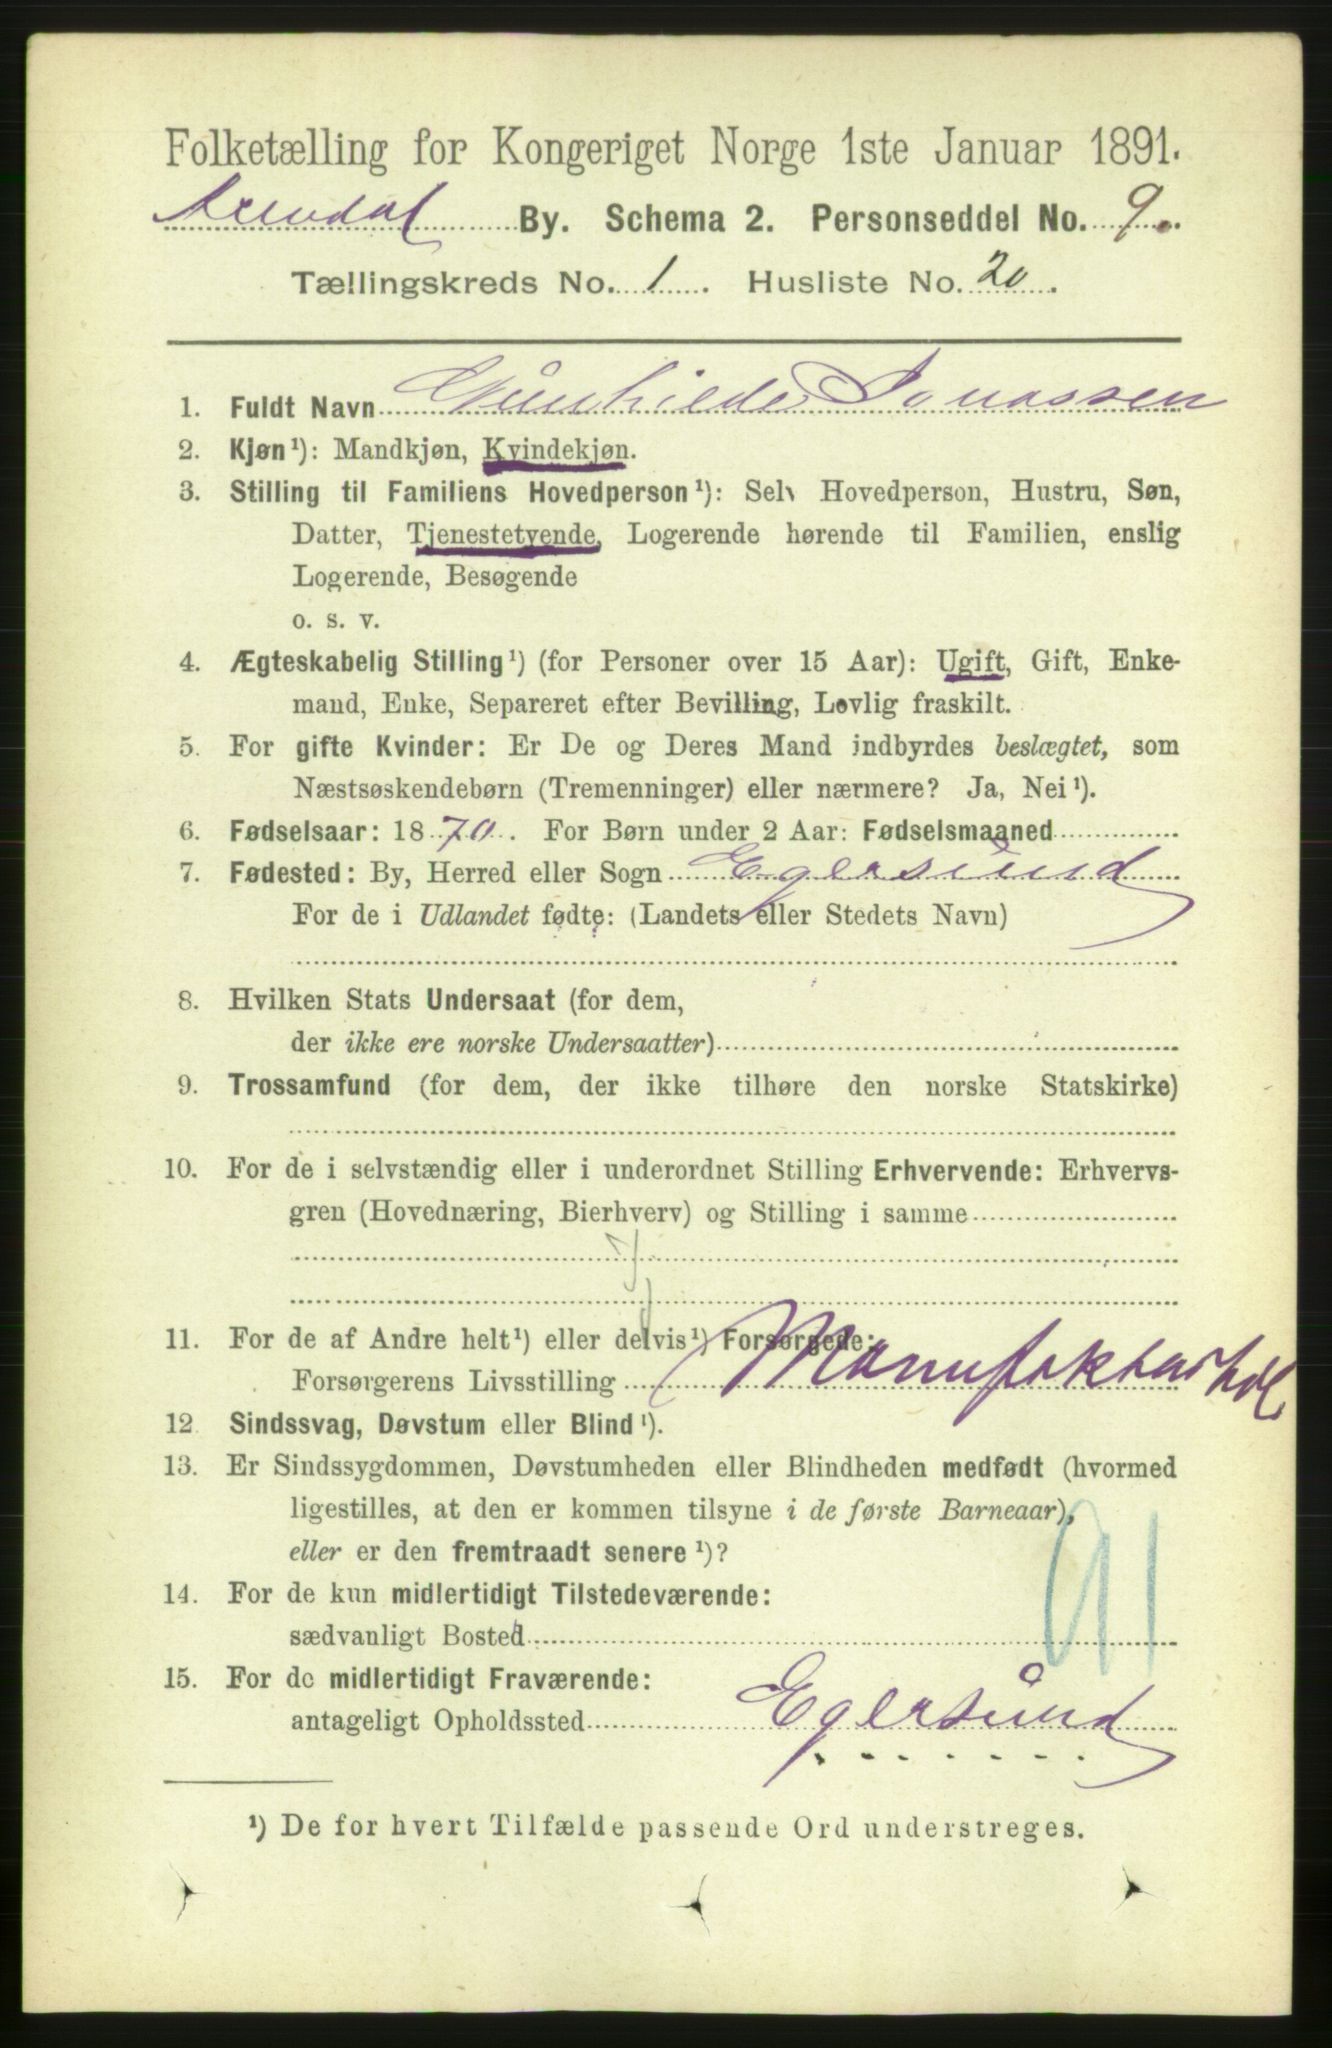 Folketælling for Kongeriget Norge 1ste Januar 1891.
Arendal By. Schema 2. Personseddel No. 9.
Tællingskreds No. 1. Husliste No. 20.
1. Fuldt Navn Gunhilde Jonassen
2. Kjøn¹): Mandkjøn, Kvindekjøn.
3. Stilling til Familiens Hovedperson¹): Selv Hovedperson, Hustru, Søn,
Datter, Tjenestetyende, Logerende hørende til Familien, enslig
Logerende, Besøgende
o. s. v.
4. Ægteskabelig Stilling¹) (for Personer over 15 Aar): Ugift, Gift, Enke-
mand, Enke, Separeret efter Bevilling, Lovlig fraskilt.
5. For gifte Kvinder: Er De og Deres Mand indbyrdes beslægtet, som
Næstsøskendebørn (Tremenninger) eller nærmere? Ja, Nei¹).
6. Fødselsaar: 1870. For Børn under 2 Aar: Fødselsmaaned
7. Fødested: By, Herred eller Sogn Egersund
For de i Udlandet fødte: (Landets eller Stedets Navn)
8. Hvilken Stats Undersaat (for dem,
der ikke ere norske Undersaatter)
9. Trossamfund (for dem, der ikke tilhøre den norske Statskirke)
10. For de i selvstændig eller i underordnet Stilling Erhvervende: Erhvervs-
gren (Hovednæring, Bierhverv) og Stilling i samme
11. For de af Andre helt¹) eller delvis¹) Forsørgede:
Forsørgerens Livsstilling Manufakturhdl
12. Sindssvag, Døvstum eller Blind¹).
13. Er Sindssygdommen, Døvstumheden eller Blindheden medfødt (hvormed
ligestilles, at den er kommen tilsyne i de første Barneaar),
eller er den fremtraadt senere¹)?
91
14. For de kun midlertidigt Tilstedeværende:
sædvanligt Bosted
15. For de midlertidigt Fraværende:
antageligt Opholdssted Egersund
¹) De for hvert Tilfælde passende Ord understreges.